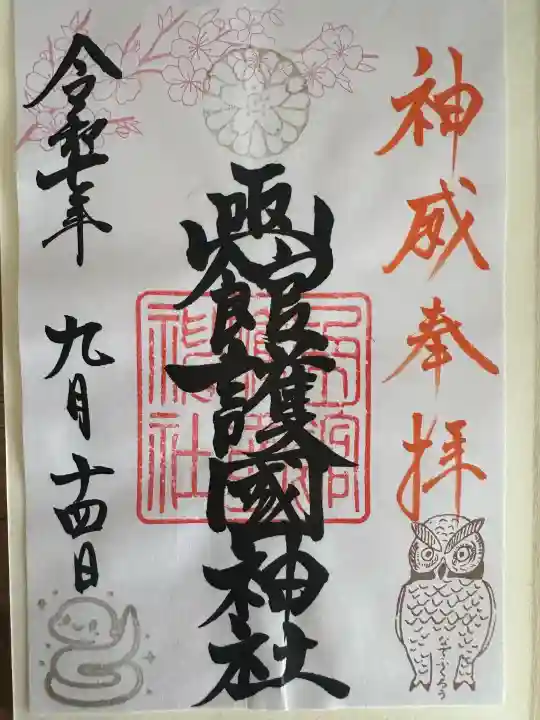 神威奉拝
凾館護國神社
凾館
護國
神社
令和七年
九月十四日
なでふくろう